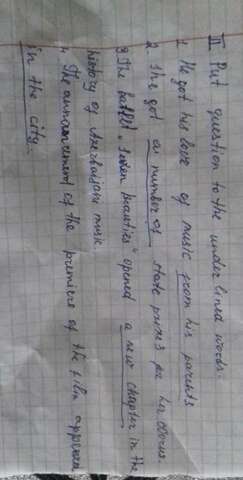 II Put question to the underlined words.
1. He got his love of music from his parents
2. She got a number of state prizes for his
3. The ballet "Seven beauties" opened a new chapter in the
history of Azerbaijani music
4. The announcement of the premiere of the film appeared
in the city.